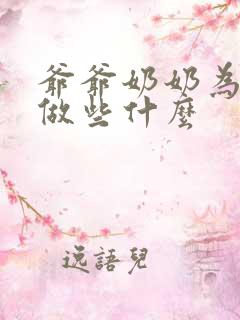 爺爺奶奶為
做些什麼
逸語兒